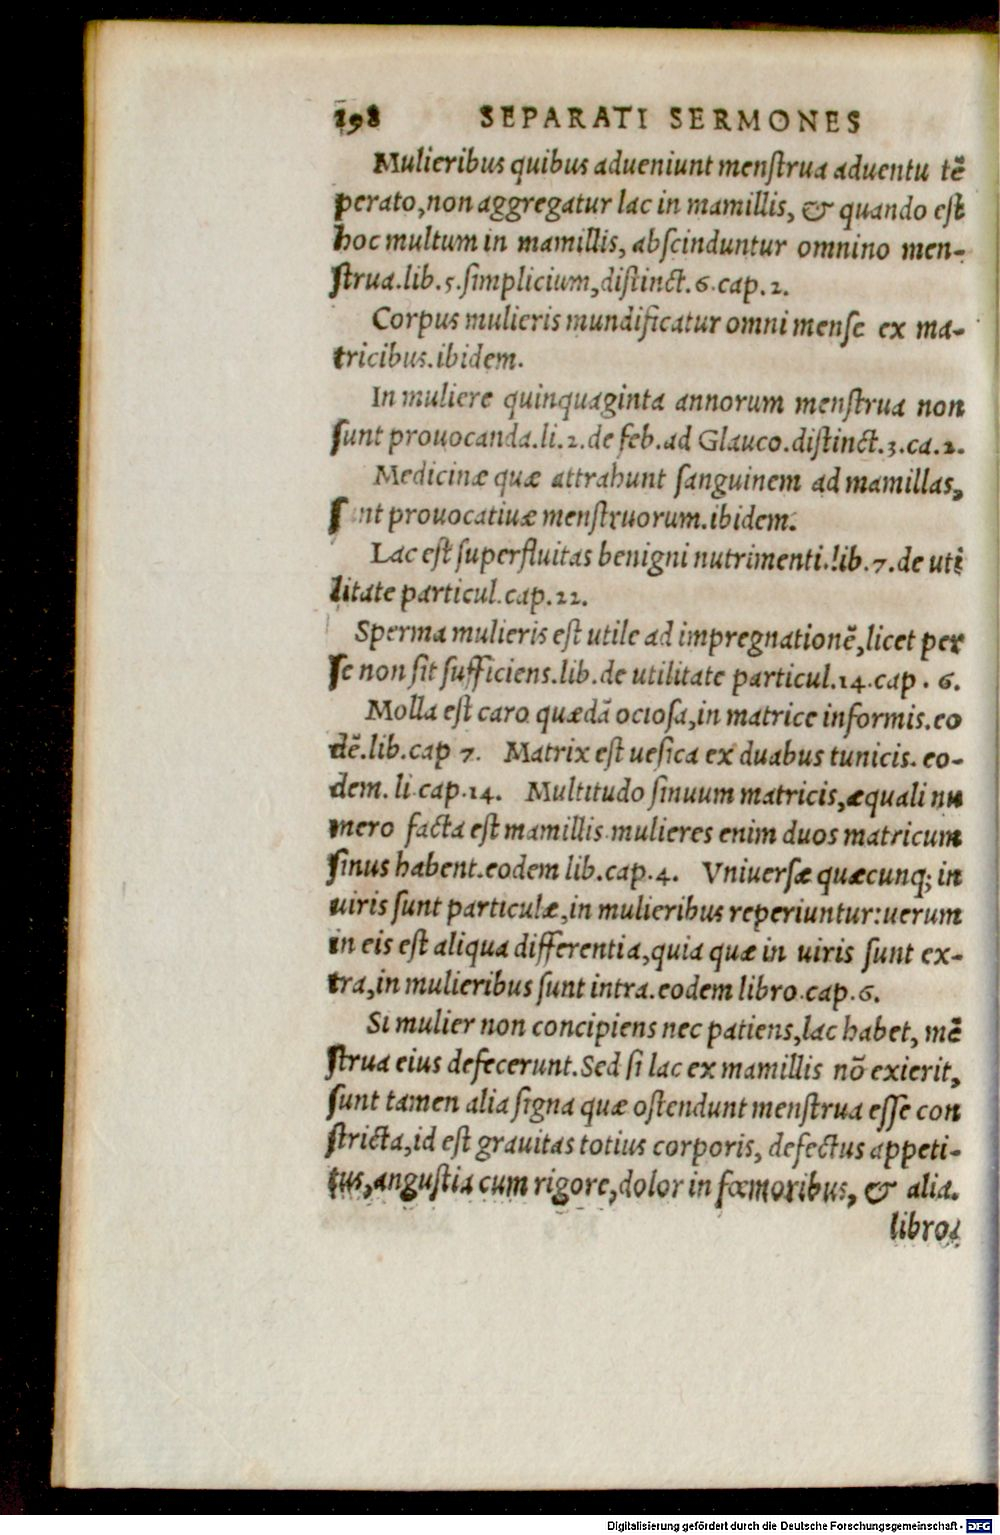 198 SEPARATI SERMONES
Mulieribus quibus adueniunt menſtrua aduentu tẽ
perato, non aggregatur lac in mamillis, & quando eſt
hoc multum in mamillis, abſcinduntur omnino men-
ſtrua. lib. 5. ſimplicium, diſtinct. 6. cap. 2.
Corpus mulieris mundificatur omni menſe ex ma-
tricibus. ibidem.
In muliere quinquaginta annorum menſtrua non
ſunt prouocanda. li. 2. de feb. ad Glauco. diſtinct. 3. ca. 2.
Medicinæ quæ attrahunt ſanguinem ad mamillas,
ſunt prouocatiuæ menſtruorum. ibidem.
Lac eſt ſuperfluitas benigni nutrimenti. lib. 7. de uti
litate particul. cap. 22.
Sperma mulieris eſt utile ad impregnationẽ, licet per
ſe non ſit ſufficiens. lib. de utilitate particul. 14. cap. 6.
Molla eſt caro quædã ocioſa, in matrice informis. eo
dẽ. lib. cap 7. Matrix eſt ueſica ex duabus tunicis. eo-
dem. li. cap. 14. Multitudo ſinuum matricis, æquali nu
mero facta eſt mamillis. mulieres enim duos matricum
ſinus habent. eodem lib. cap. 4. Vniuerſæ quæcunq; in
uiris ſunt particulæ, in mulieribus reperiuntur: uerum
in eis eſt aliqua differentia, quia quæ in uiris ſunt ex-
tra, in mulieribus ſunt intra. eodem libro. cap. 6.
Si mulier non concipiens nec patiens, lac habet, mẽ
ſtrua eius defecerunt. Sed ſi lac ex mamillis nõ exierit,
ſunt tamen alia ſigna quæ oſtendunt menſtrua eſſe con
ſtricta, id eſt grauitas totius corporis, defectus appeti-
tus, anguſtia cum rigore, dolor in fœmoribus, & alia.
libro
Digitalisierung gefördert durch die Deutsche Forschungsgemeinschaft - DFG